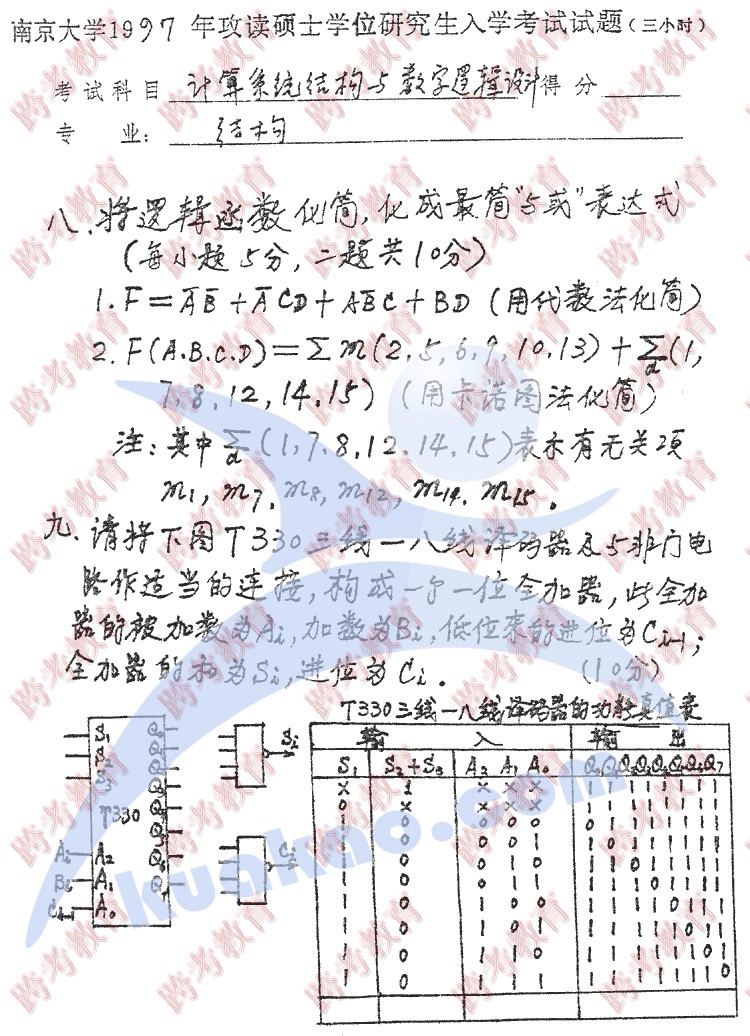 南京大学1997年攻读硕士学位研究生入学考试试题(三小时)
考试科目 计算系统结构与数字逻辑设计 得分
专 业: 结构
八.将逻辑函数化简,化成最简"与或"表达式
(每小题5分,二题共10分)
1. F = A̅B̅ + A̅CD + AB̅C + BD (用代数法化简)
2. F(A.B.C.D) = Σm(2,5,6,9,10,13) + Σd(1,
7,8,12,14,15) (用卡诺图法化简)
注:其中Σd(1,7.8,12.14.15)表示有无关项
m1, m7, m8, m12, m14, m15.
九.请将下图T330三线一八线译码器及与非门电
路作适当的连接,构成一个一位全加器,此全加
器的被加数为Ai,加数为Bi,低位来的进位为Ci-1;
全加器的和为Si,进位为Ci. (10分)
T330三线一八线译码器的功能真值表
S1
S2
S3
T330
Ai A2
Bi A1
Ci-1 A0
Q0
Q1
Q2
Q3
Q4
Q5
Q6
Q7
Si
Ci
输 入 输 出
S1 S2+S3 A2 A1 A0 Q0 Q1 Q2 Q3 Q4 Q5 Q6 Q7
× 1 × × × 1 1 1 1 1 1 1 1
0 × × × × 1 1 1 1 1 1 1 1
1 0 0 0 0 0 1 1 1 1 1 1 1
1 0 0 0 1 1 0 1 1 1 1 1 1
1 0 0 1 0 1 1 0 1 1 1 1 1
1 0 0 1 1 1 1 1 0 1 1 1 1
1 0 1 0 0 1 1 1 1 0 1 1 1
1 0 1 0 1 1 1 1 1 1 0 1 1
1 0 1 1 0 1 1 1 1 1 1 0 1
1 0 1 1 1 1 1 1 1 1 1 1 0
跨考教育
kuakao.com